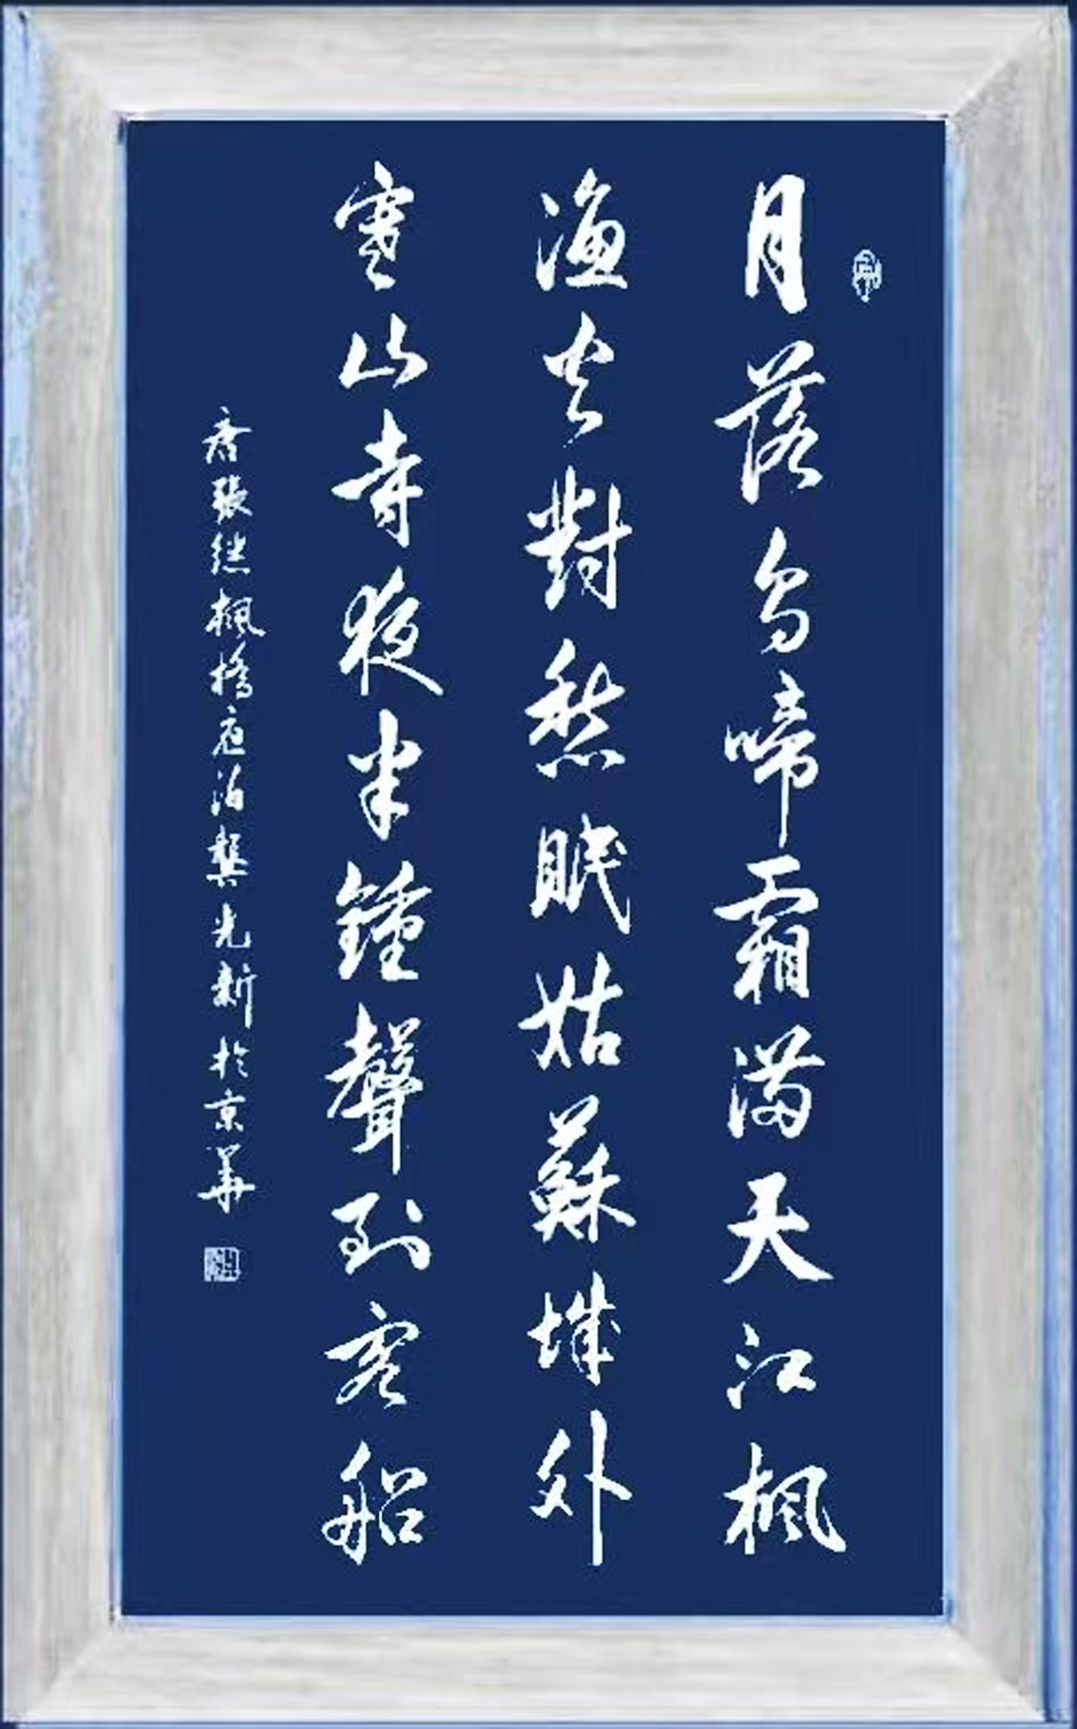 月落烏啼霜滿天江楓
漁火對愁眠姑蘇城外
寒山寺夜半鐘聲到客船
唐張継楓橋夜泊龔光新於京華